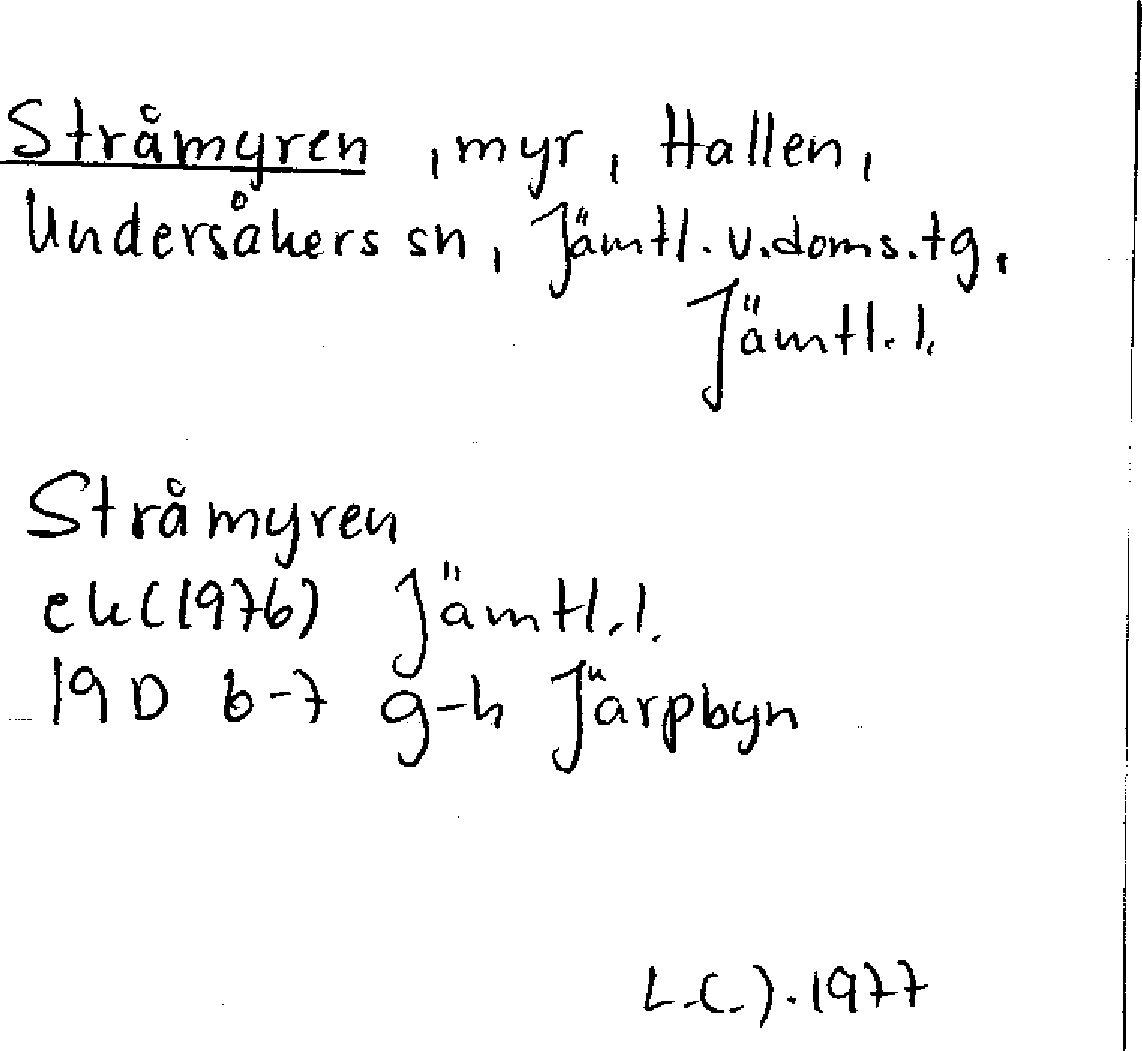 Stråmyren, myr, Hallen,
Undersåkers sn, Jämtl. v. doms. tg,
Jämtl. l.
Stråmyren
ek (1976) Jämtl. l.
19D 6-7 g-h Järpbyn
L.C.J. 1977